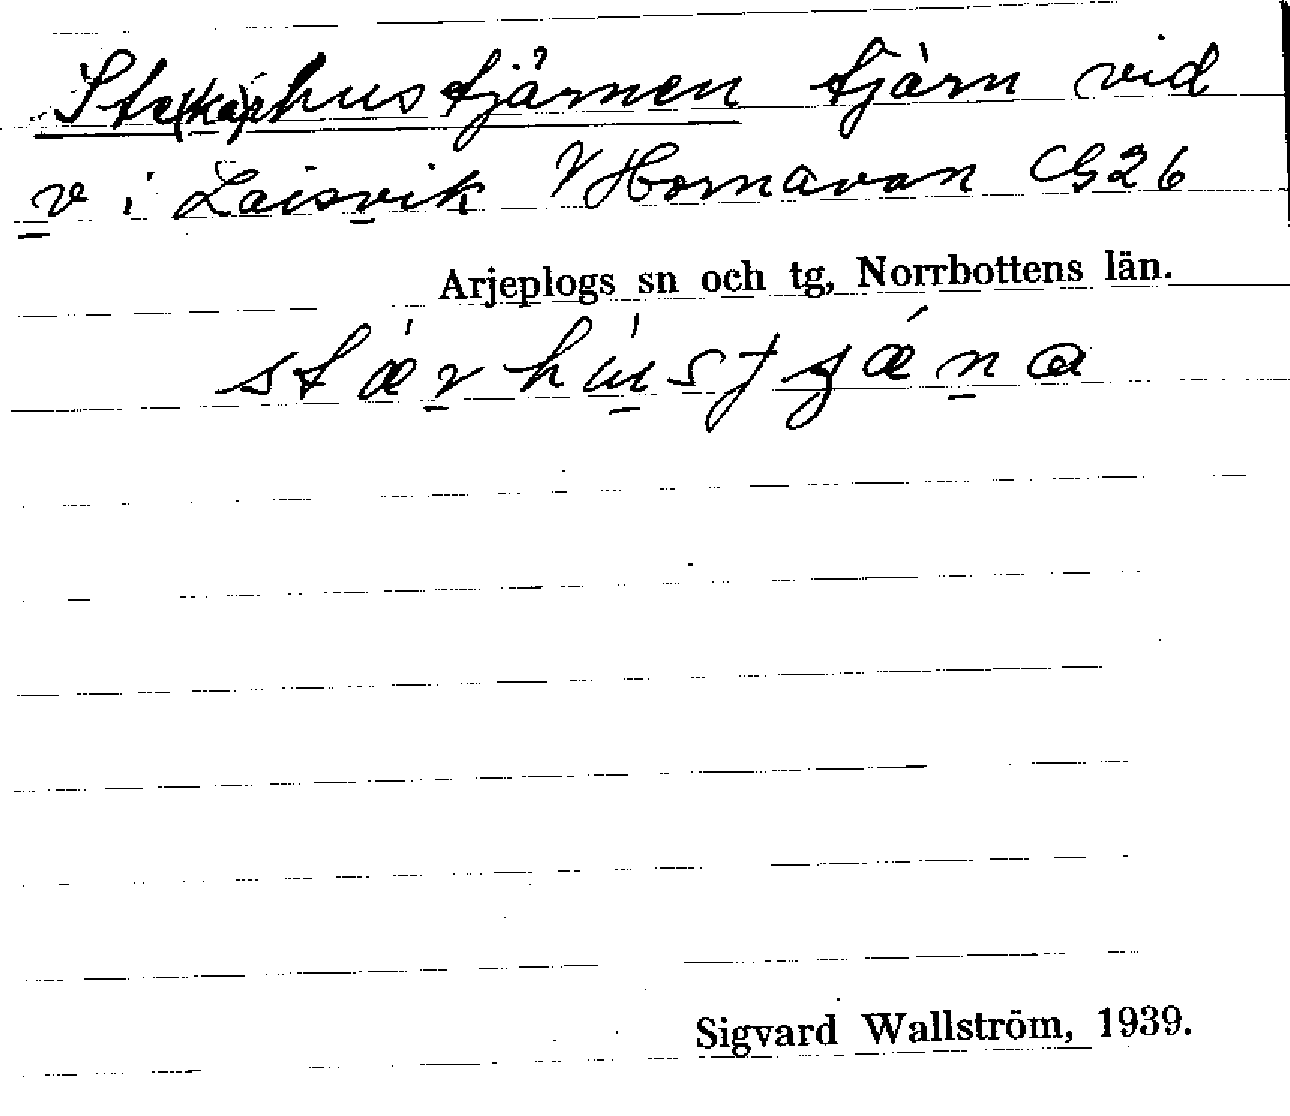 Ste(ka)rhustjärnen tjärn vid
v i Laisvik V Hornavan G26
Arjeplogs sn och tg, Norrbottens län.
stærhustjæna
Sigvard Wallström, 1939.